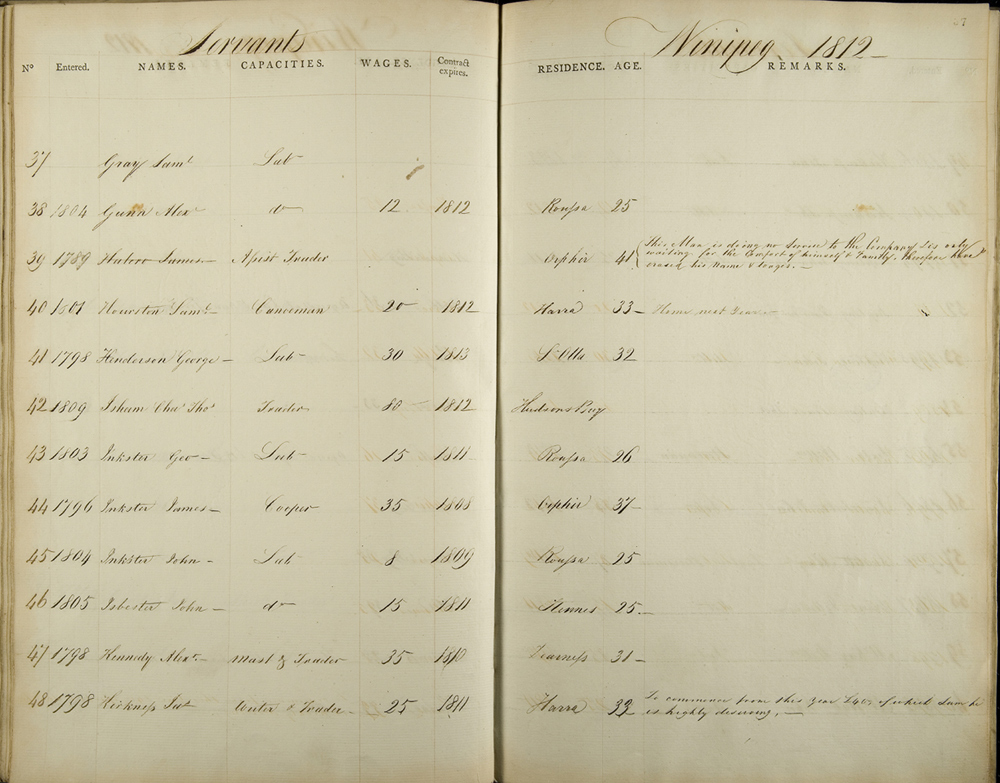 Servants
Winipeg 1812
No Entered. NAMES. CAPACITIES. WAGES. Contract expires. RESIDENCE. AGE. REMARKS.
37 Gray Saml Lab
38 1804 Gunn Alexr do 12 1812 Roussa 25
39 1789 Halcro James Assist Trader Orphir 41 This Man is doing no Service to the Company & is only
waiting for the Comfort of himself & Family. therefore have
erased his Name & Wages.
40 1801 Hourston Saml Canoeman 20 1812 Harra 33 Home next Year
41 1798 Henderson George Lab 30 1813 St Olla 32
42 1809 Isham Chas Thos Trader 80 1812 Hudsons Bay
43 1803 Inkster Geo Lab 15 1811 Roussa 26
44 1796 Inkster James Cooper 35 1808 Orphir 37
45 1804 Inkster John Lab 8 1809 Roussa 25
46 1805 Isbester John do 15 1811 25
47 1798 Kennedy Alexr Mast & Trader 35 1810 31
48 1798 Kirkness Jas Writer & Trader 25 1811 Harra To commence from this Year of which Sum he
is highly deserving.